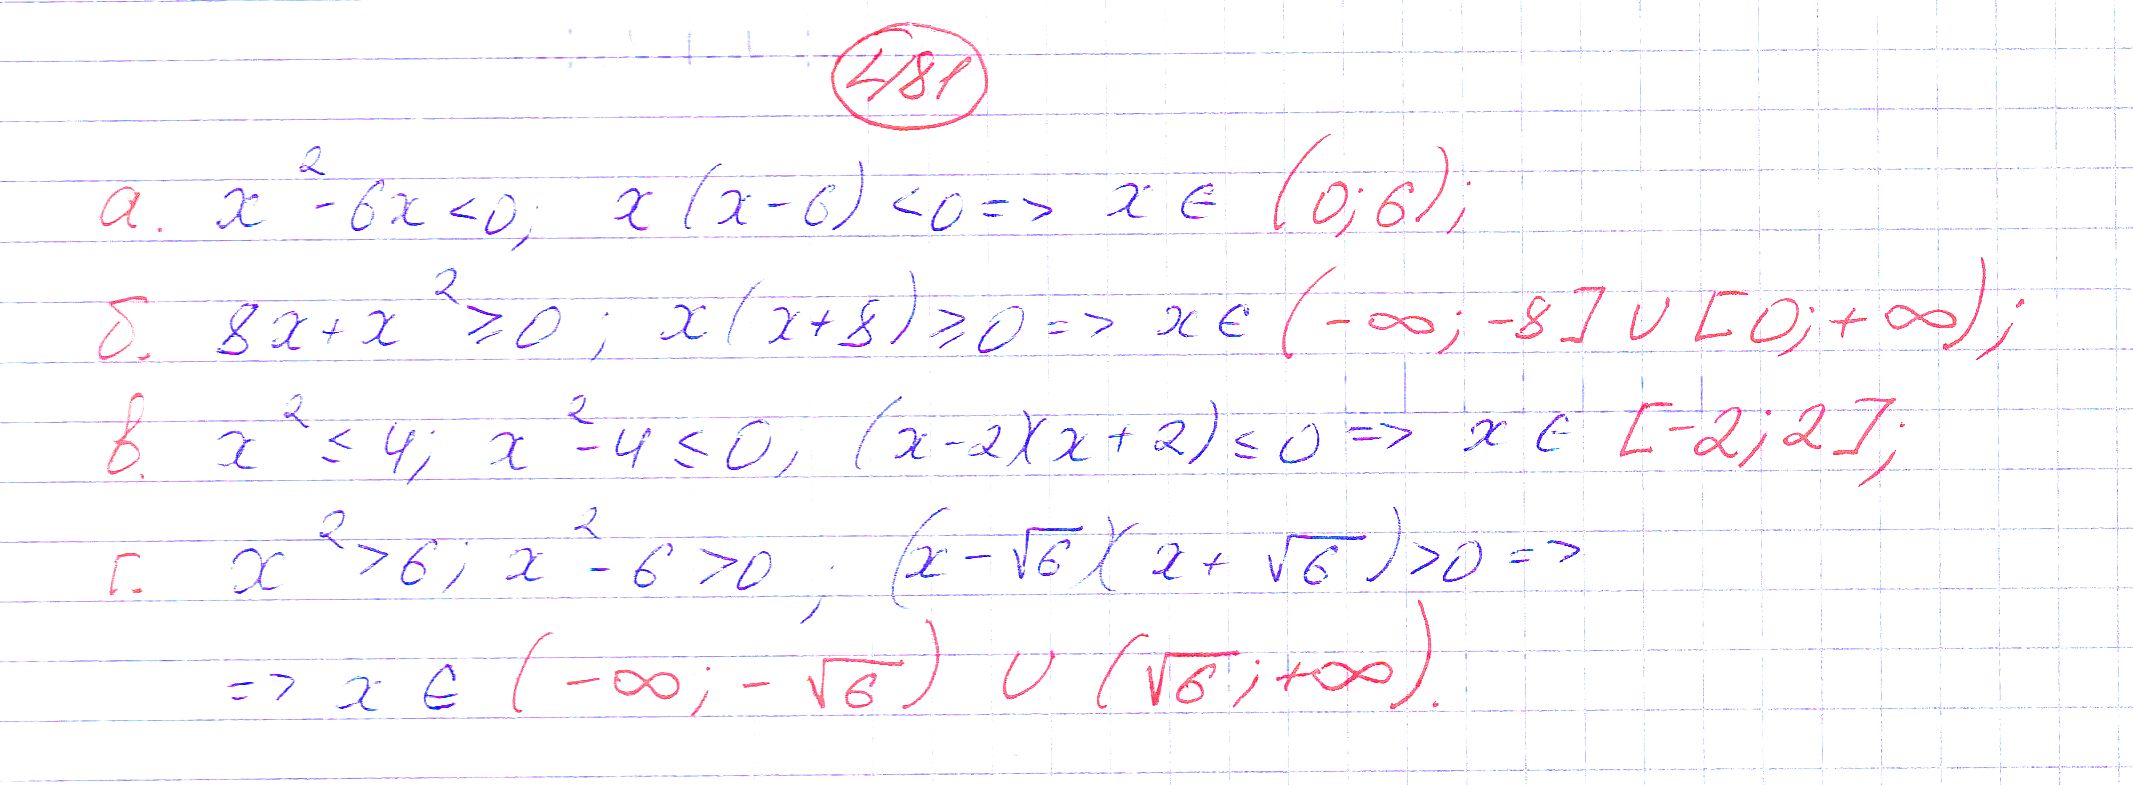 481
а. x²-6x<0; x(x-6)<0=> x∈ (0;6);
б. 8x+x²≥0; x(x+8)≥0=> x∈(-∞;-8]∪[0;+∞);
в. x²≤4; x²-4≤0; (x-2)(x+2)≤0=> x∈ [-2;2];
г. x²>6; x²-6>0; (x-√6)(x+√6)>0=>
=> x∈ (-∞;-√6) ∪ (√6;+∞).